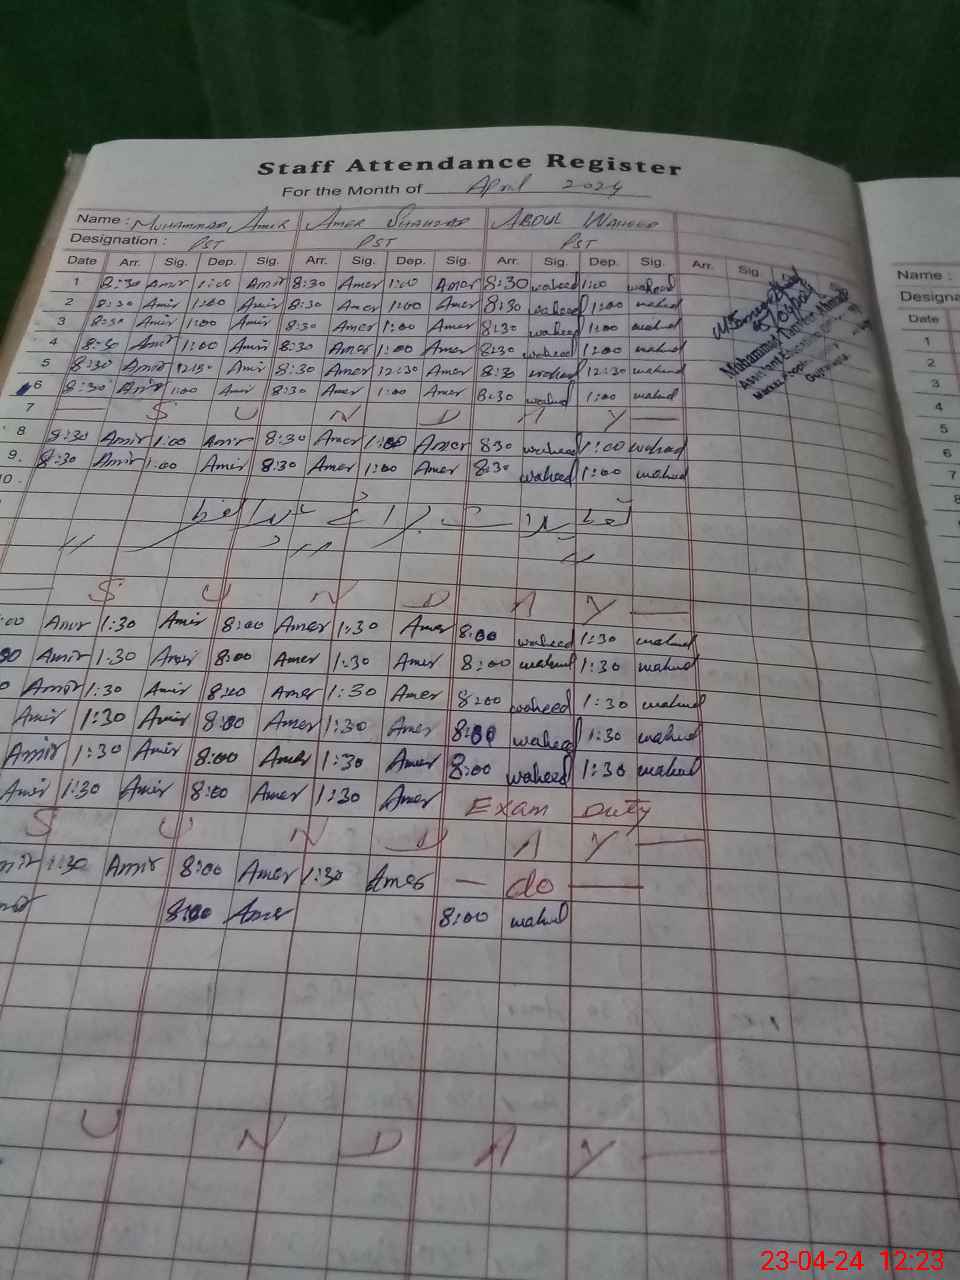 Staff Attendance Register
For the Month of April 2024
Name : MUHAMMAD AMIR AMER SHAHZAD ABDUL WAHEED
Designation : PST PST PST
Date Arr. Sig. Dep. Sig. Arr. Sig. Dep. Sig. Arr. Sig. Dep. Sig. Arr. Sig.
1 8:30 Amir 1:00 Amir 8:30 Amer 1:00 Amer 8:30 waheed 1:00 waheed
2 8:30 Amir 1:00 Amir 8:30 Amer 1:00 Amer 8:30 waheed 1:00 waheed
3 8:30 Amir 1:00 Amir 8:30 Amer 1:00 Amer 8:30 waheed 1:00 waheed
4 8:30 Amir 1:00 Amir 8:30 Amer 1:00 Amer 8:30 waheed 1:00 waheed
5 8:30 Amir 12:30 Amir 8:30 Amer 12:30 Amer 8:30 waheed 12:30 waheed
6 8:30 Amir 1:00 Amir 8:30 Amer 1:00 Amer 8:30 waheed 1:00 waheed
7 — S U N D A Y —
8 8:30 Amir 1:00 Amir 8:30 Amer 1:00 Amer 8:30 waheed 1:00 waheed
9. 8:30 Amir 1:00 Amir 8:30 Amer 1:00 Amer 8:30 waheed 1:00 waheed
10.
— S U N D A Y —
:00 Amir 1:30 Amir 8:00 Amer 1:30 Amer 8:00 waheed 1:30 waheed
00 Amir 1:30 Amir 8:00 Amer 1:30 Amer 8:00 waheed 1:30 waheed
0 Amir 1:30 Amir 8:00 Amer 1:30 Amer 8:00 waheed 1:30 waheed
Amir 1:30 Amir 8:00 Amer 1:30 Amer 8:00 waheed 1:30 waheed
Amir 1:30 Amir 8:00 Amer 1:30 Amer 8:00 waheed 1:30 waheed
Amir 1:30 Amir 8:00 Amer 1:30 Amer Exam Duty
S U N D A Y —
mir 1:30 Amir 8:00 Amer 1:30 Amer — do —
8:00 Amer 8:00 waheed
U N D A Y —
Name :
Designa
Date
1
2
3
4
5
6
7
8
23-04-24 12:23